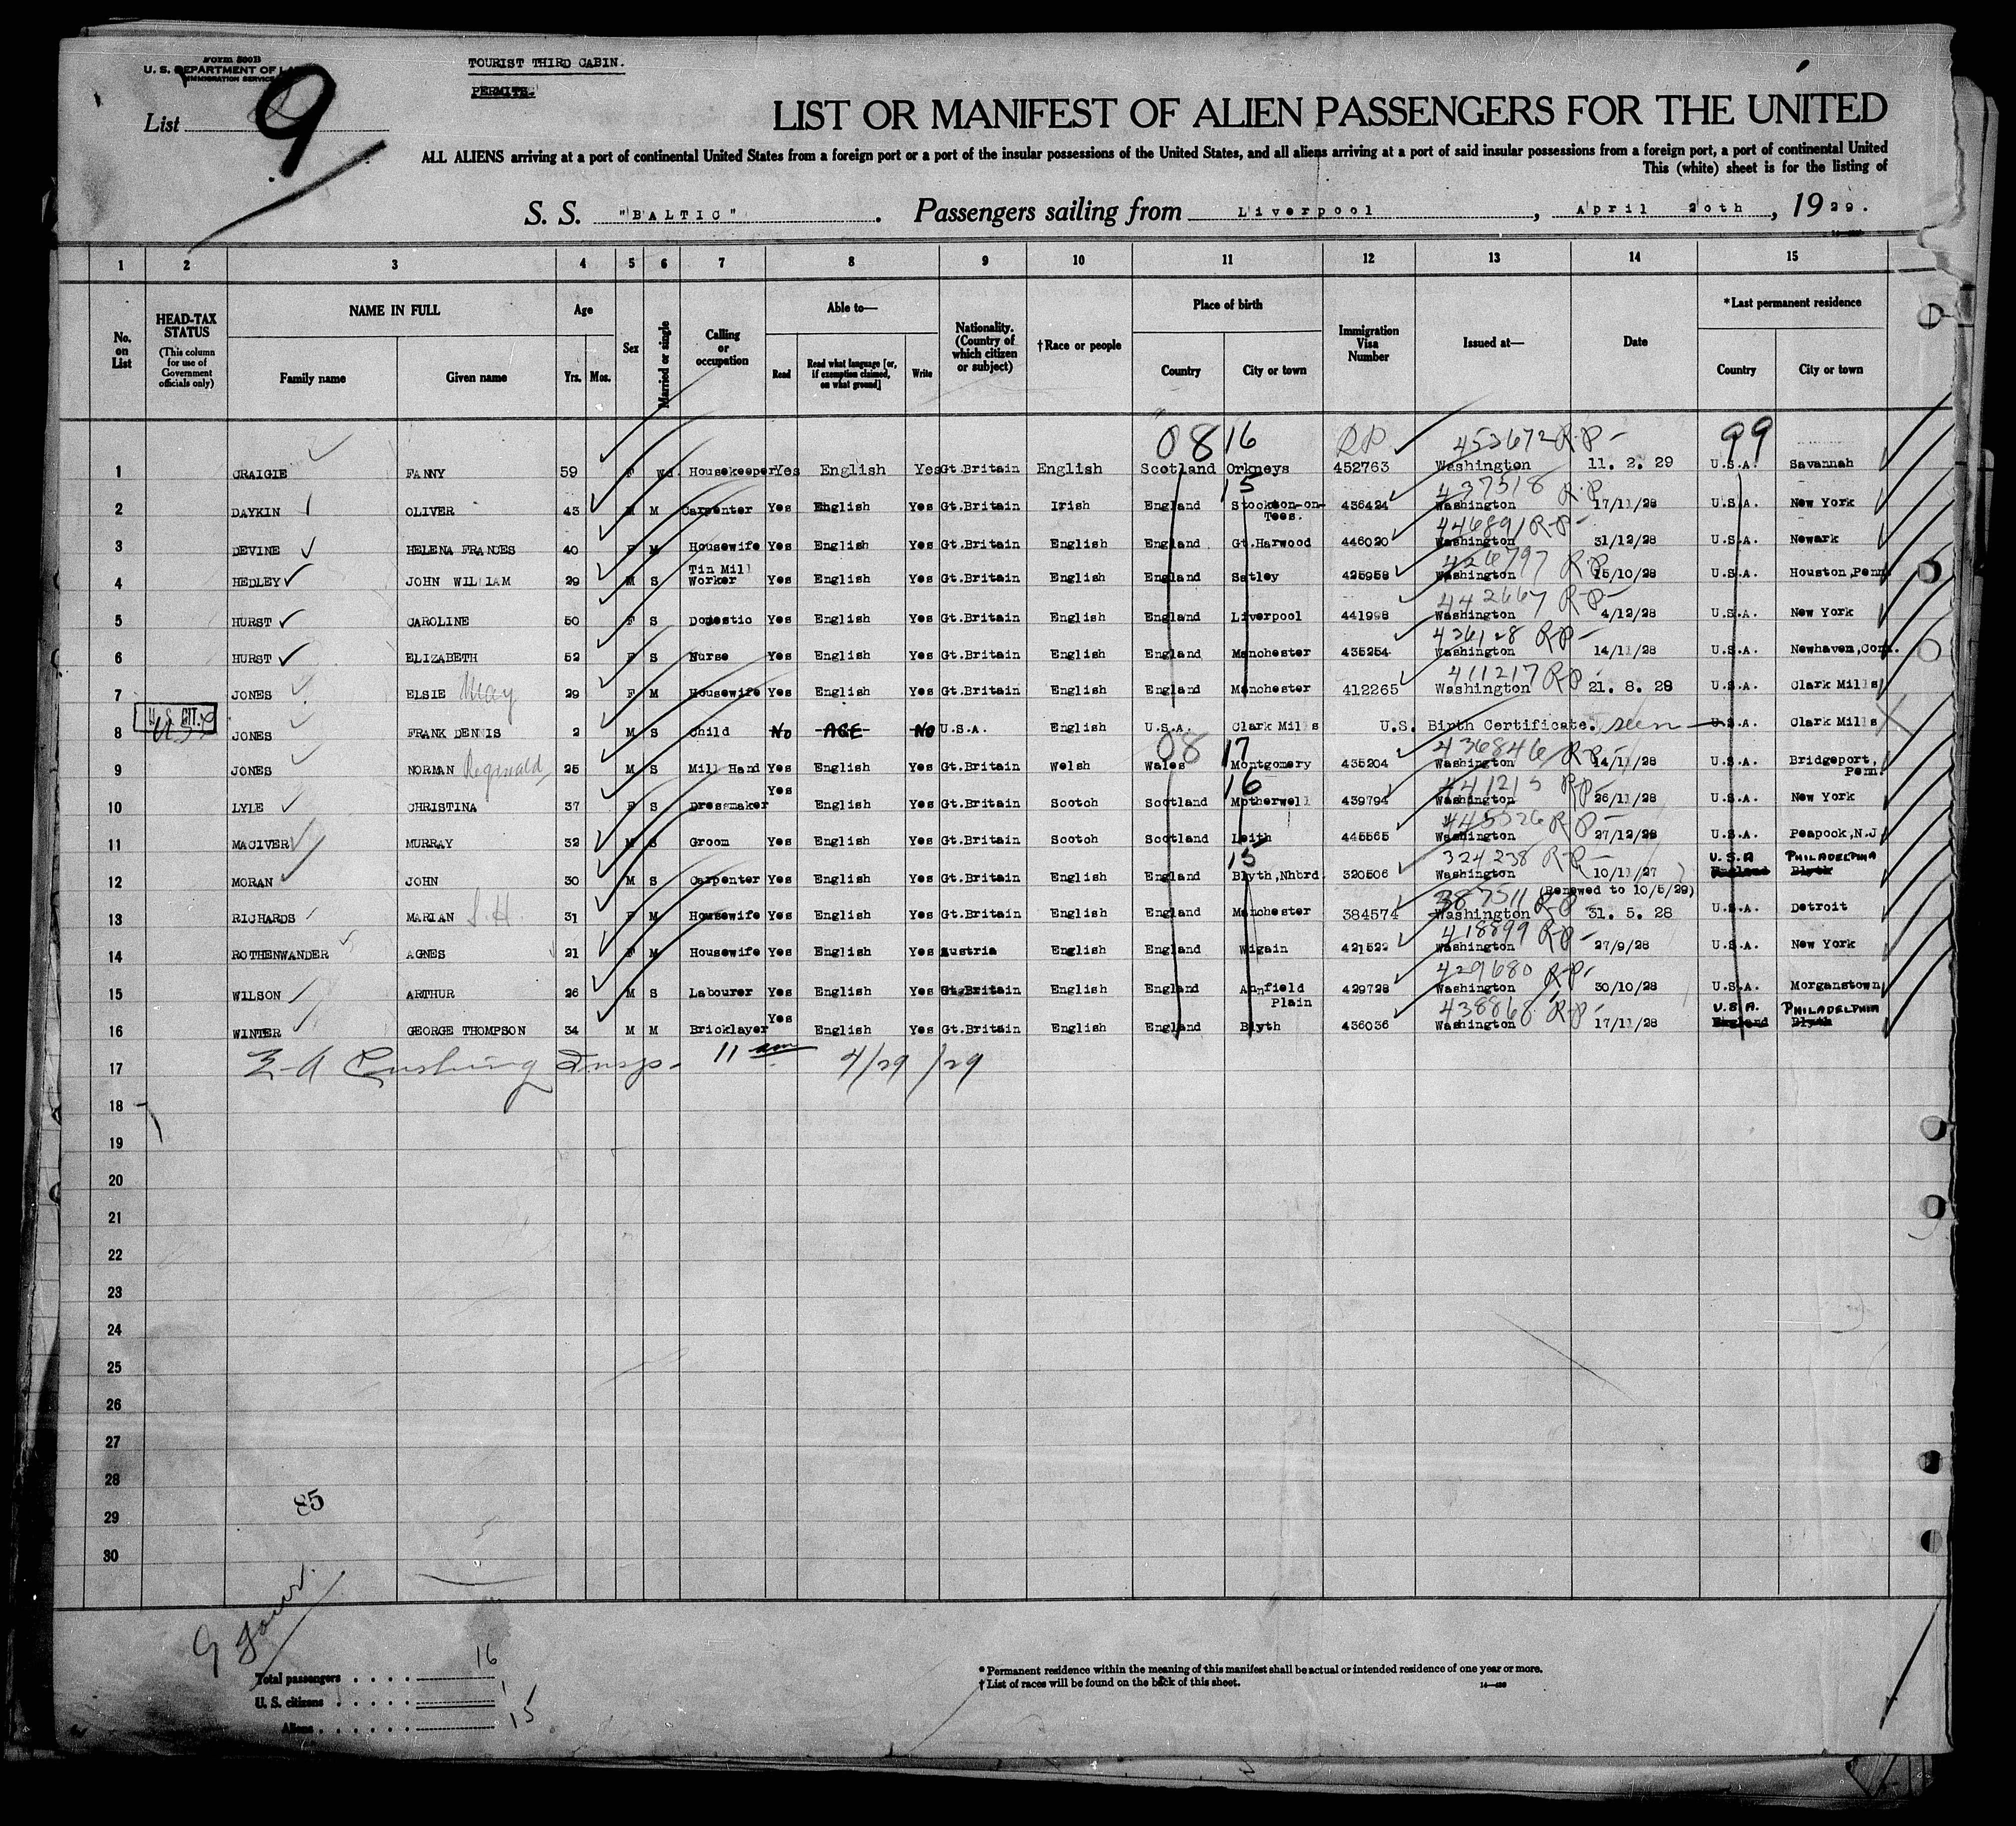 Form 500B
U. S. DEPARTMENT OF
IMMIGRATION SERVICE
TOURIST THIRD CABIN.
PERMITS.
List 9
LIST OR MANIFEST OF ALIEN PASSENGERS FOR THE UNITED
ALL ALIENS arriving at a port of continental United States from a foreign port or a port of the insular possessions of the United States, and all aliens arriving at a port of said insular possessions from a foreign port, a port of continental United
This (white) sheet is for the listing of
S. S. "BALTIC". Passengers sailing from Liverpool, April 20th, 1929.
1 2 3 4 5 6 7 8 9 10 11 12 13 14 15
No. on List
HEAD-TAX STATUS
(This column for use of Government officials only)
NAME IN FULL
Family name Given name
Age
Yrs. Mos.
Sex
Married or single
Calling or occupation
Able to—
Read Read what language [or, if exemption claimed, on what ground] Write
Nationality. (Country of which citizen or subject)
†Race or people
Place of birth
Country City or town
Immigration Visa Number
Issued at—
Date
*Last permanent residence
Country City or town
08 16 RP 453672 R.P- 99
1 CRAIGIE FANNY 59 F Wd. Housekeeper Yes English Yes Gt.Britain English Scotland Orkneys 452763 Washington 11. 2. 29 U.S.A. Savannah
15 437518 R.P
2 DAYKIN OLIVER 43 M M Carpenter Yes English Yes Gt.Britain Irish England Stockton-on-Tees. 436424 Washington 17/11/28 U.S.A. New York
446891 R-P-
3 DEVINE HELENA FRANCES 40 F M Housewife Yes English Yes Gt.Britain English England Gt.Harwood 446020 Washington 31/12/28 U.S.A. Newark
426797 R.P
4 HEDLEY JOHN WILLIAM 29 M S Tin Mill Worker Yes English Yes Gt.Britain English England Satley 425958 Washington 15/10/28 U.S.A. Houston,Penn.
442667 R-P-
5 HURST CAROLINE 50 F S Domestic Yes English Yes Gt.Britain English England Liverpool 441998 Washington 4/12/28 U.S.A. New York
436128 R-P-
6 HURST ELIZABETH 52 F S Nurse Yes English Yes Gt.Britain English England Manchester 435254 Washington 14/11/28 U.S.A. Newhaven,Conn.
411217 R-P-
7 JONES ELSIE May 29 F M Housewife Yes English Yes Gt.Britain English England Manchester 412265 Washington 21. 8. 28 U.S.A. Clark Mills
U. S. CIT.
8 JONES FRANK DENNIS 2 M S Child No AGE No U.S.A. English U.S.A. Clark Mills U.S. Birth Certificate. seen U.S.A. Clark Mills
08 17 436846 R-P-
9 JONES NORMAN Reginald 25 M S Mill Hand Yes English Yes Gt.Britain Welsh Wales Montgomery 435204 Washington 14/11/28 U.S.A. Bridgeport, Penn.
16 441215 R-P-
10 LYLE CHRISTINA 37 F S Dressmaker Yes English Yes Gt.Britain Scotch Scotland Motherwell 439794 Washington 26/11/28 U.S.A. New York
445526 R-P-
11 MACIVER MURRAY 32 M S Groom Yes English Yes Gt.Britain Scotch Scotland Leith 445565 Washington 27/12/28 U.S.A. Peapock,N.J.
15 324238 R-P- U.S.A PHILADELPHIA
12 MORAN JOHN 30 M S Carpenter Yes English Yes Gt.Britain English England Blyth,Nhbrd. 320506 Washington 10/11/27 England Blyth
387511 R-P- (Renewed to 10/5/29)
13 RICHARDS MARIAN S.H. 31 F M Housewife Yes English Yes Gt.Britain English England Manchester 384574 Washington 31. 5. 28 U.S.A. Detroit
418899 R-P-
14 ROTHENWANDER AGNES 21 F M Housewife Yes English Yes Austria English England Wigain 421522 Washington 27/9/28 U.S.A. New York
429680 R-P-
15 WILSON ARTHUR 26 M S Labourer Yes English Yes Gt.Britain English England Annfield Plain 429728 Washington 30/10/28 U.S.A. Morganstown
438868 R-P- U.S.A. PHILADELPHIA
16 WINTER GEORGE THOMPSON 34 M M Bricklayer Yes English Yes Gt.Britain English England Blyth 436036 Washington 17/11/28 England Blyth
17 E-A Cushing Insp- 11 am 4/29/29
18
19
20
21
22
23
24
25
26
27
28
85
29
30
Total passengers 16
U. S. citizens 1
Aliens 15
* Permanent residence within the meaning of this manifest shall be actual or intended residence of one year or more.
† List of races will be found on the back of this sheet.